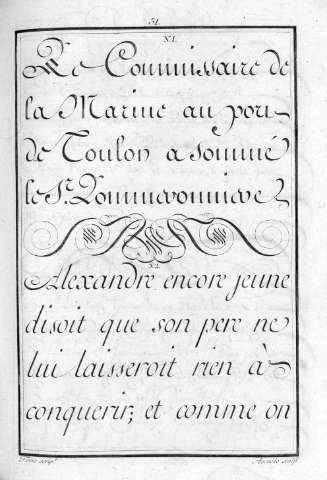 31
XI.
Le Commissaire de
la Marine au port
de Toulon a sommé
le Sr.
XI.
Alexandre encore jeune
disoit que son pere ne
lui laisseroit rien à
conquerir; et comme on
scrip. sculp.